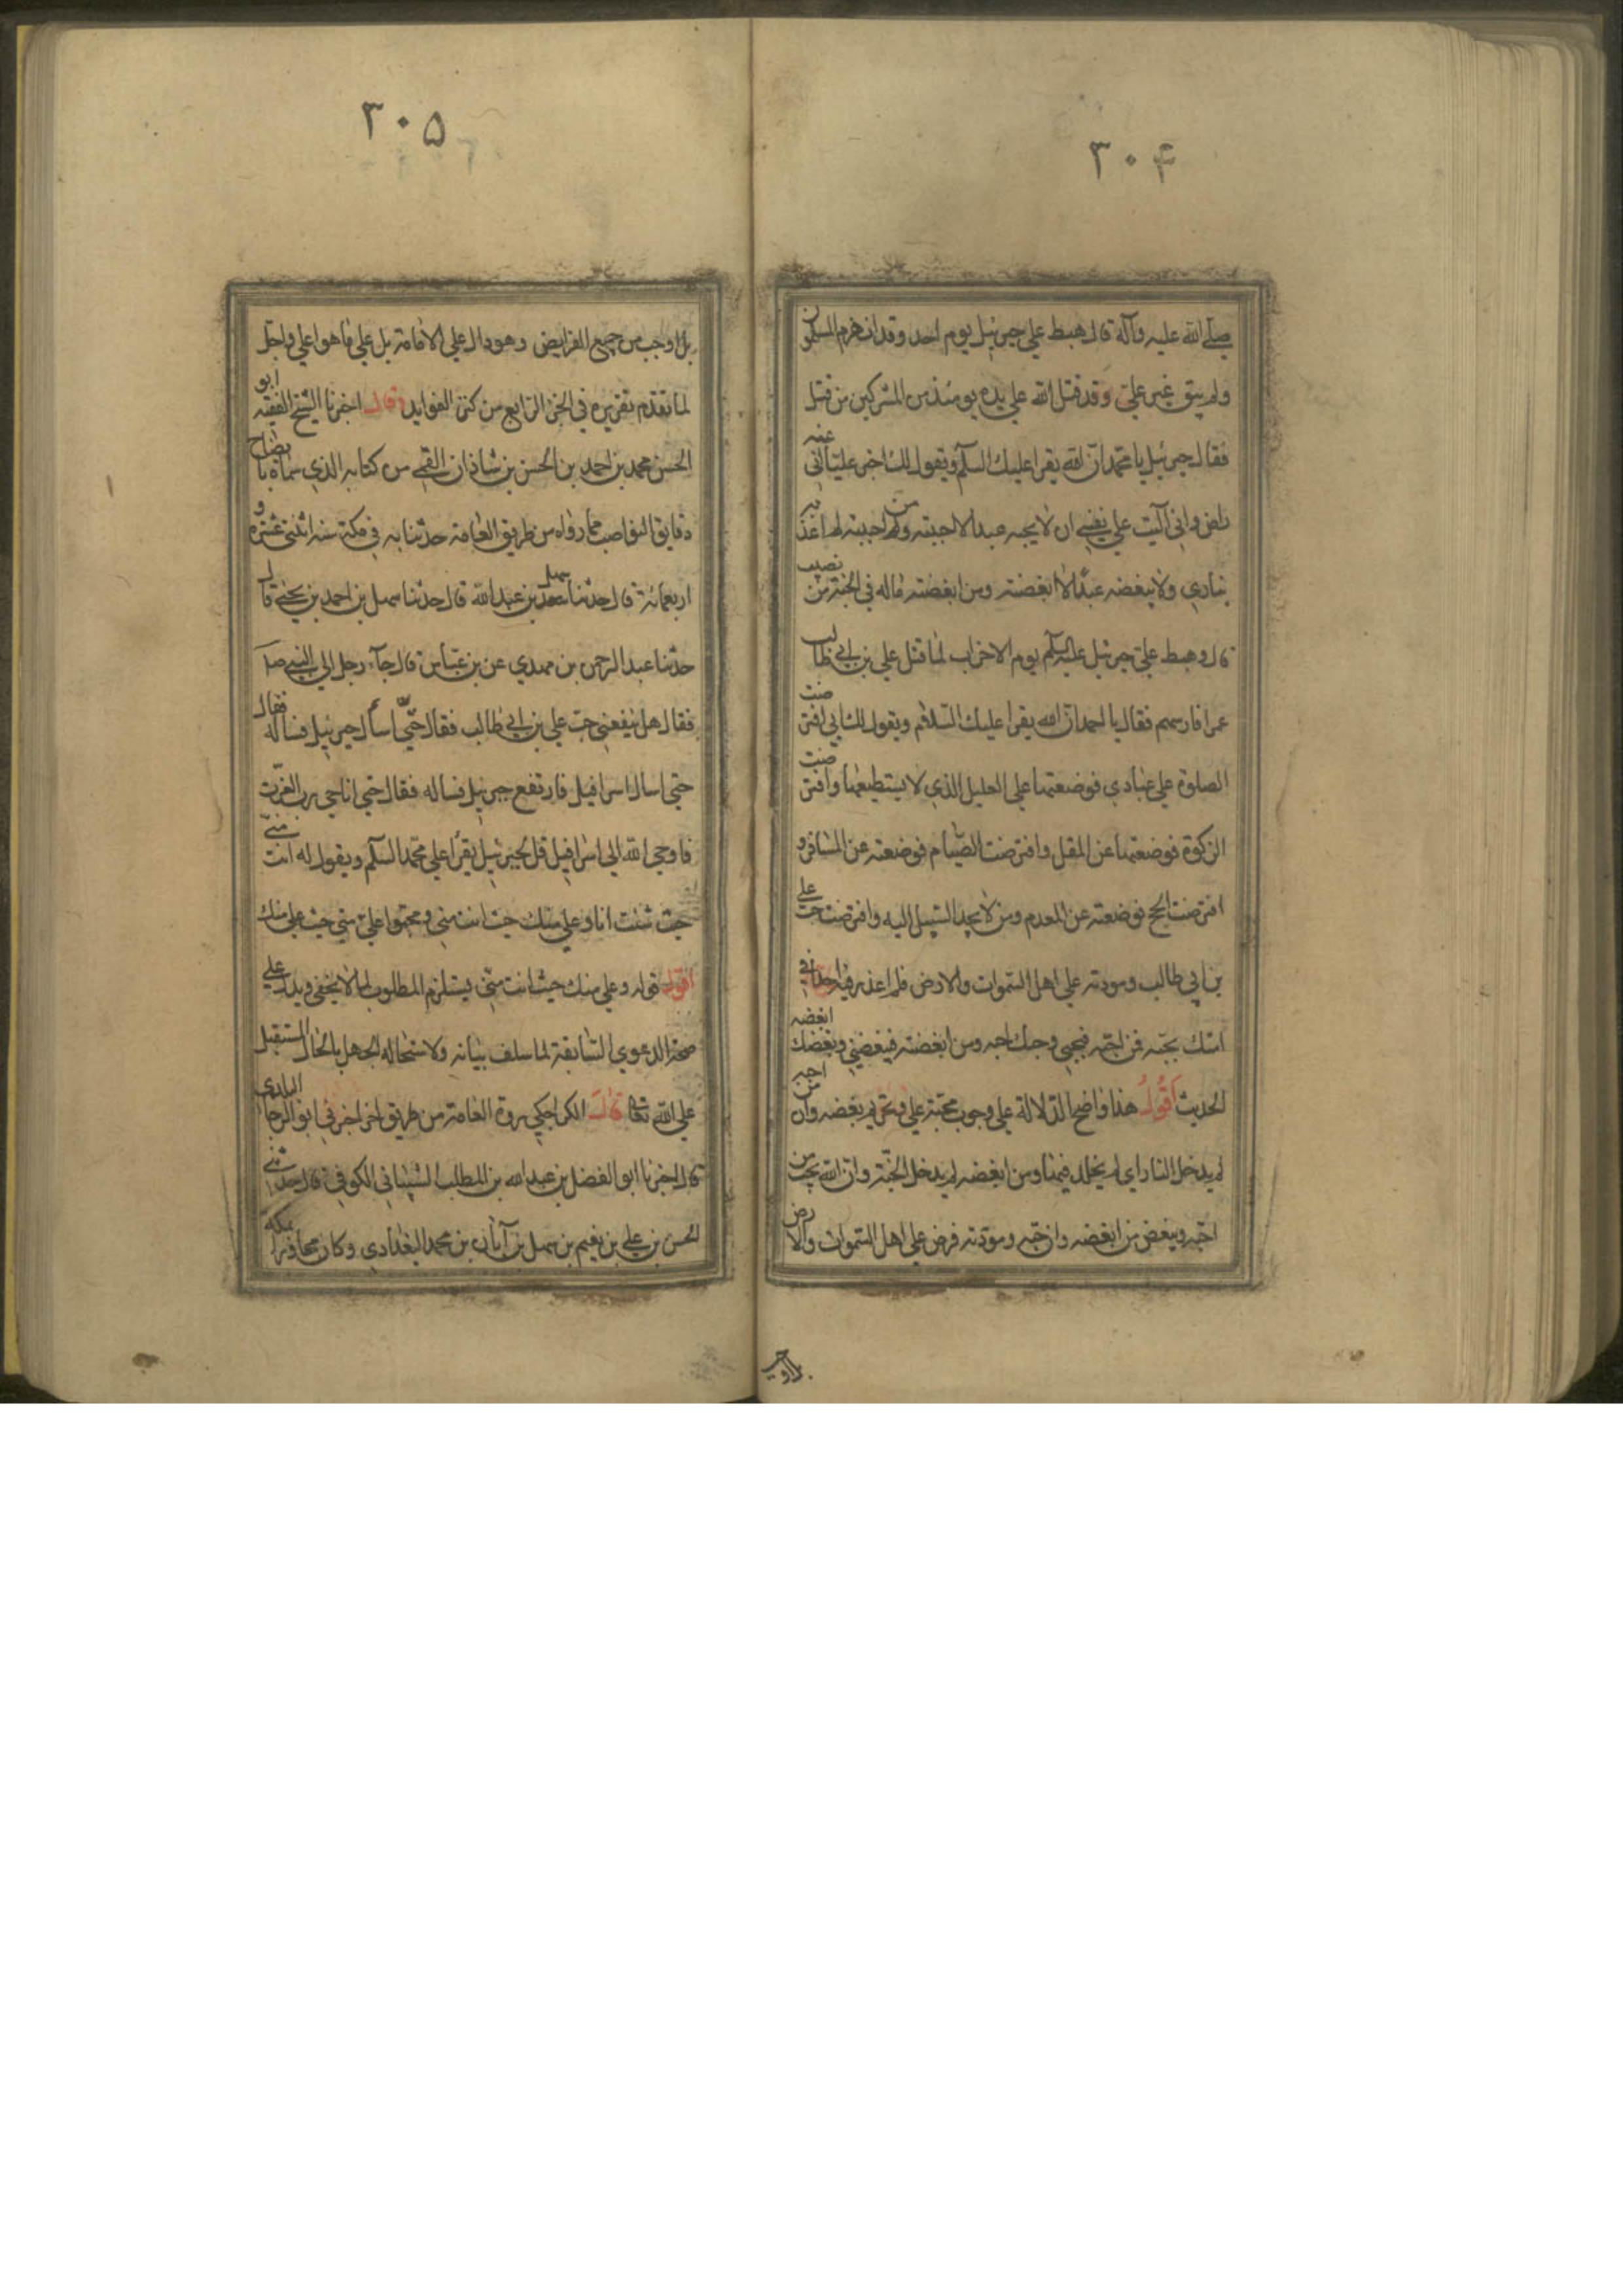 ٣٠۴
صلى الله عليه وآله قال هبط علي جبرئيل يوم احد وقد انهزم المسلمون
ولم يبق غير علي وقد قتل الله على يده يومئذ من المشركين من قتل
فقال جبرئيل يا محمد ان الله يقرا عليك السلام ويقول لك اخبر عليا اني عنه
راض واني آليت على نفسي ان لا يحبه عبد الا احببته ومن احببته لم اعذبه
بناري ولا يبغضه عبد الا ابغضته ومن ابغضته ماله في الجنة من نصيب
قال وهبط علي جبرئيل عليه السلم يوم الاحزاب لما قتل علي بن ابي طالب
عمرا فارسهم فقال يا احمد ان الله يقرا عليك السلام ويقول لك اني افترضت
الصلوة على عبادي فوضعتها على العليل الذي لا يستطيعها وافترضت
الزكوة فوضعتها عن المقل وافترضت الصيام فوضعته عن المسافر و
افترضت الحج فوضعته عن المعدم ومن لا يجد السبيل اليه وافترضت حب علي
بن ابي طالب ومودته على اهل السموات والارض فلم اعذر فيه احدا
امتك بحبه فمن احبه فبحبي وحبك احبه ومن ابغضه فببغضي وبغضك ابغضه
الحديث اقول هذا واضح الدلالة على وجوب محبة علي وتحريم بغضه وان من احبه
لم يدخل النار اي لم يخلد فيها ومن ابغضه لم يدخل الجنة وان الله يحب من
احبه ويبغض من ابغضه وان حبه ومودته فرض على اهل السموات والارض
بل اوجب
٣٠۵
بل اوجب من جميع الفرايض وهو دال على الامامة بل على ما هو اعلى واجل
لما تقدم تقريره في الجزء الرابع من كنز الفوايد وقال اخبرنا الشيخ الفقيه ابو
الحسن محمد بن احمد بن الحسن بن شاذان القمي من كتابه الذي سماه بايضاح
دقايق النواصب مما رواه من طريق العامة حدثنا به في مكة سنة اثنتي عشرة و
اربعمائة قال حدثنا سهل بن عبدالله قال حدثنا سهل بن احمد بن يحيى قال
حدثنا عبد الرحمن بن مهدي عن بن عباس قال جآء رجل الى النبي صلى
فقال هل ينفعني حب علي بن ابي طالب فقال حتى اسأل جبرئيل فساله فقال
حتى اسال اسرافيل فارتفع جبرئيل فساله فقال حتى اناجي رب العزت
فاوحى الله الى اسرافيل قل لجبرئيل يقرأ على محمد السلم ويقول له انت مني
حيث شئت انا وعلي منك حيث انت مني ومحبوا علي مني حيث علي منك
اقول قوله وعلي منك حيث انت مني يستلزم المطلوب لما لا يخفى ويدل على
صحة الدعوى السابقة لما سلف بيانه ولاستحاله الجهل بالحال المستقبل
على الله تعا قال الكراجكي روت العامة من طريق اخر اخبرني ابو الرجا البلدي
قال اخبرنا ابو الفضل بن عبدالله بن المطلب الشيباني الكوفي قال حدثني
الحسن بن علي بن نعيم بن سهل بن آبان بن محمد البغدادي وكان مجاورا بمكة